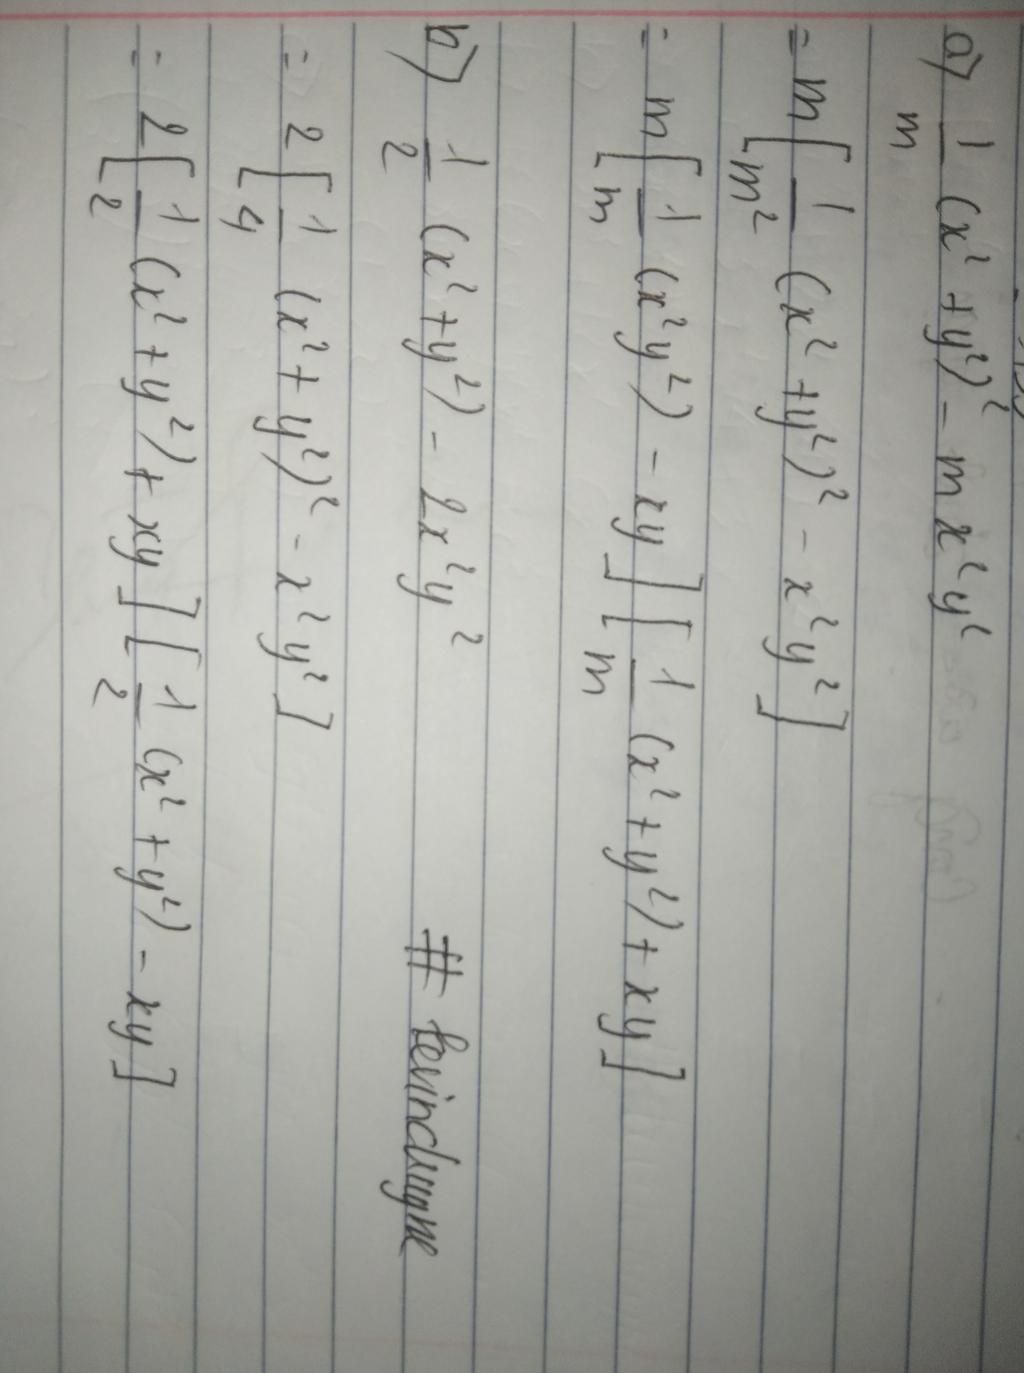 a) 1/m (x² + y²)² - m x² y²
= m [1/m² (x² + y²)² - x² y²]
= m [1/m (x² y²) - xy] [1/m (x² + y²) + xy]
b) 1/2 (x² + y²) - 2x² y² #
= 2 [1/4 (x² + y²)² - x² y²]
= 2 [1/2 (x² + y²) + xy] [1/2 (x² + y²) - xy]